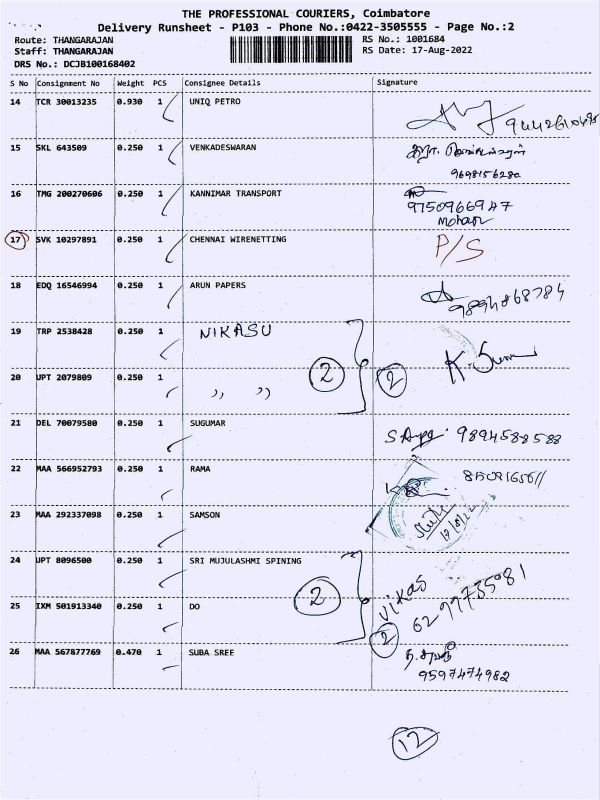 THE PROFESSIONAL COURIERS, Coimbatore
Delivery Runsheet - P103 - Phone No.:0422-3505555 - Page No.:2
Route: THANGARAJAN
RS No.: 1001684
Staff: THANGARAJAN
RS Date: 17-Aug-2022
DRS No.: DCJB100168402
S No Consignment No Weight PCS Consignee Details Signature
14 TCR 30013235 0.930 1 UNIQ PETRO
15 SKL 643509 0.250 1 VENKADESWARAN
9698156280
16 TMG 200270606 0.250 1 KANNIMAR TRANSPORT
9750966947
Mohan
17 SVK 10297891 0.250 1 CHENNAI WIRENETTING P/S
18 EDQ 16546994 0.250 1 ARUN PAPERS
9894868784
19 TRP 2538428 0.250 1 NIKASU
2 2
20 UPT 2079809 0.250 1 ,, ,,
21 DEL 70079580 0.250 1 SUGUMAR 9894588588
22 MAA 566952793 0.250 1 RAMA
23 MAA 292337098 0.250 1 SAMSON
24 UPT 8096500 0.250 1 SRI MUJULASHMI SPINING
2 Vikas
62997735981
25 IXM 501913340 0.250 1 DO
2
26 MAA 567877769 0.470 1 SUBA SREE
9597474982
12